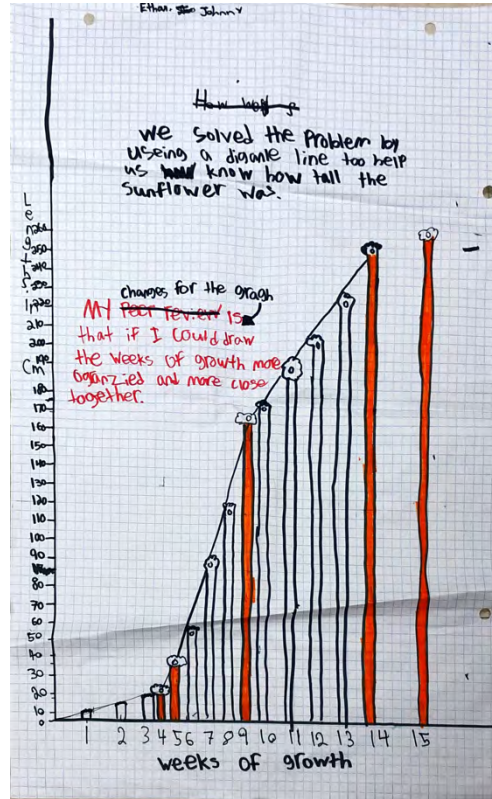 Ethan. Johnny
How
we solved the Problem by
useing a diganle line too help
us know how tall the
sunflower was.
changes for the gragh
My Peer review is
that if I could draw
the weeks of growth more
oganzied and more close
together.
Length in
Cm
260
250
240
230
220
210
200
190
180
170
160
150
140
130
120
110
100
90
80
70
60
50
40
30
20
10
0
1 2 3 4 5 6 7 8 9 10 11 12 13 14 15
weeks of growth